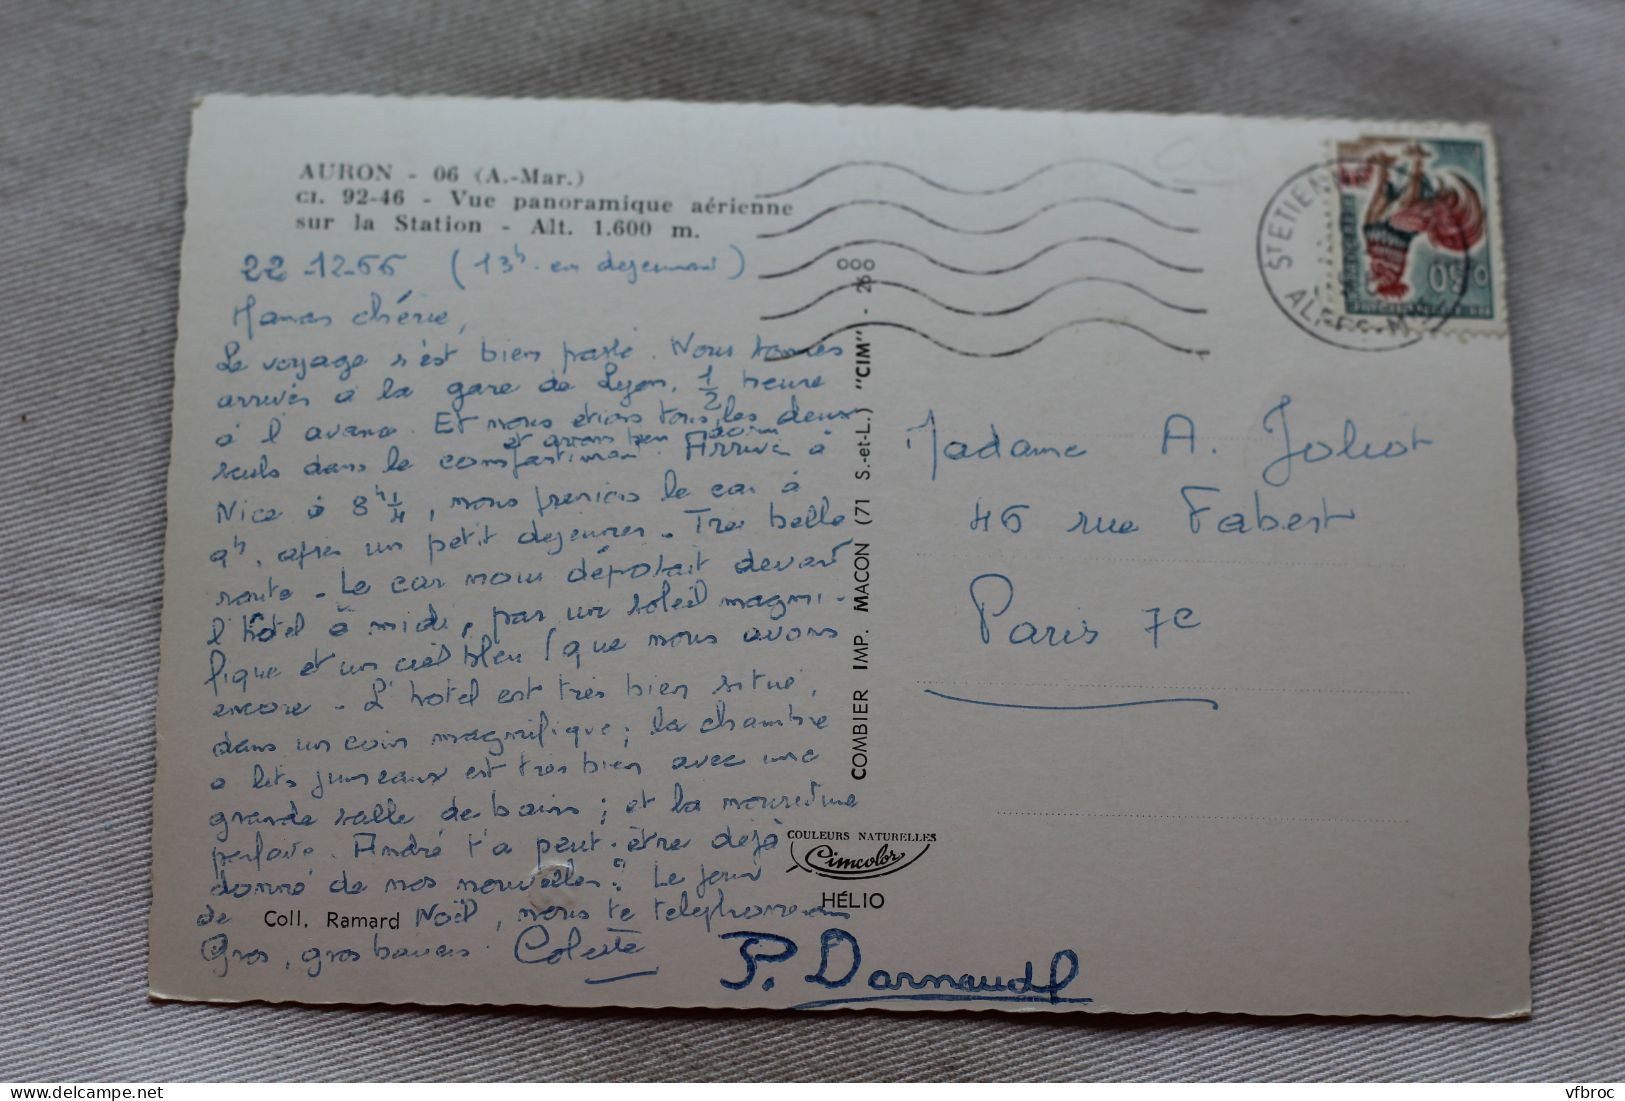 AURON - 06 (A.-Mar.)
CI. 92-46 - Vue panoramique aérienne
sur la Station - Alt. 1.600 m.
22-12-66 (13h. en dejeunant)
Maman chérie,
Le voyage s'est bien passé. Nous sommes
arrivés à la gare de Lyon, 1/2 heure
à l'avance. Et nous étions tous les deux
seuls dans le compartiment et avons bien dormi. Arrivée à
Nice à 8h 1/4, nous prenions le car à
9h, après un petit dejeuner. Très belle
route. Le car nous déposait devant
l'hôtel à midi, par un soleil magni-
fique et un ciel bleu (que nous avons
encore. L'hotel est très bien situé,
dans un coin magnifique; la chambre
a lits jumeaux est très bien avec une
grande salle de bains; et la nourriture
parfaite. André t'a peut-être déjà
donné de nos nouvelles? Le jour
de Noël, nous te telephonerons
Coll. Ramard
Gros, gros baisers. Colette
P. Darnaud
COMBIER IMP. MACON (71 S.-et-L.) "CIM" - 26 000
COULEURS NATURELLES
Cimcolor
HÉLIO
ST ETIEN
ALPES-M
0,50
Madame A. Joliot
46 rue Fabert
Paris 7e
vfbroc